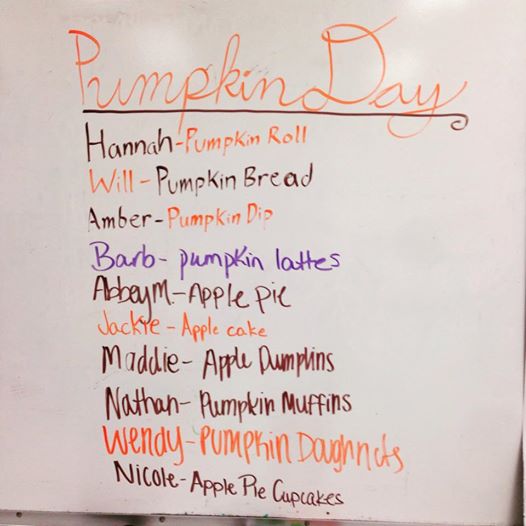 Pumpkin Day
Hannah-Pumpkin Roll
Will - Pumpkin Bread
Amber-Pumpkin Dip
Barb- pumpkin lattes
Abbey M-Apple pie
Jackie - Apple cake
Maddie- Apple Dumplins
Nathan- Pumpkin Muffins
Wendy-Pumpkin Doughnuts
Nicole-Apple Pie Cupcakes